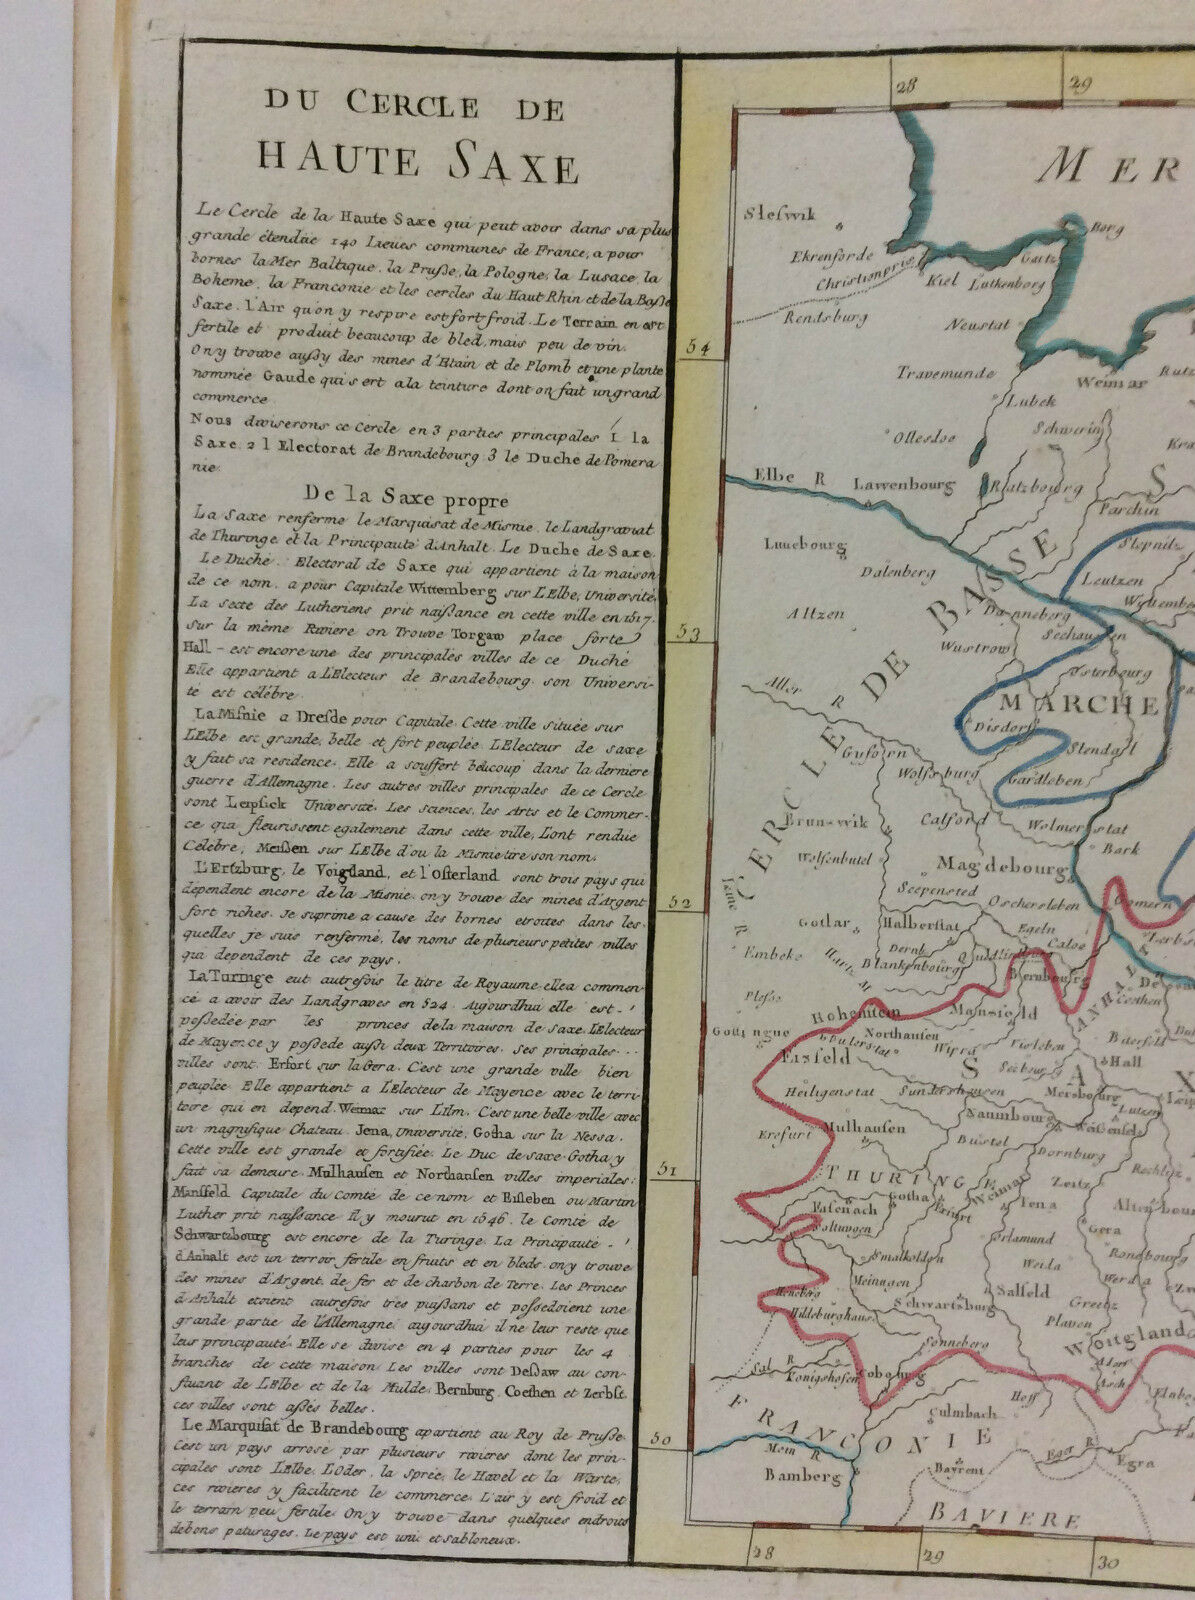 DU CERCLE DE
HAUTE SAXE
Le Cercle de la Haute Saxe qui peut avoir dans sa plus
grande étendüe 140 Lieües communes de France, a pour
bornes la Mer Baltique, la Pruſse, la Pologne, la Lusace, la
Boheme, la Franconie et les cercles du Haut Rhin et de la Baſse
Saxe. l'Air qu'on y respire est fort froid. Le Terrain en est
fertile et produit beaucoup de bled, mais peu de vin.
On y trouve auſsy des mines d'Etain et de Plomb et une plante
nommée Gaude qui sert a la teinture dont on fait un grand
commerce.
Nous diviserons ce Cercle en 3 parties principales 1 la
Saxe. 2 l Electorat de Brandebourg. 3 le Duche de Pomera
nie.
De la Saxe propre
La Saxe renferme le Marquisat de Misnie, le Landgraviat
de Thuringe et la Principauté d'Anhalt. Le Duche de Saxe.
Le Duché Electoral de Saxe qui appartient à la maison
de ce nom, a pour Capitale Wittemberg sur L'Elbe, Université.
La secte des Lutheriens prit naiſsance en cette ville en 1517.
Sur la même Riviere on Trouve Torgaw place forte
Hall est encore une des principales villes de ce Duché
Elle appartient a L'Electeur de Brandebourg. son Universi-
té est célébre.
La Miſnie a Dreſde pour Capitale. Cette ville située sur
L'Elbe est grande, belle et fort peuplée L'Electeur de saxe
y fait sa residence. Elle a souffert beucoup dans la derniere
guerre d'Allemagne. Les autres villes principales de ce Cercle
sont Leipſick Université. Les sciences, les Arts et le Commer-
ce qui fleurissent egalement dans cette ville, L'ont rendue
Célébre, Meiſsen sur L'Elbe d'ou la Misnie tire son nom.
L'Ertzburg, le Voigtland, et l'Oſterland sont trois pays qui
dependent encore de la Misnie. on y trouve des mines d'Argent
fort riches. Je suprime a cause des bornes etroites dans les-
quelles je suis renfermé, les noms de plusieurs petites villes
qui dependent de ces pays.
La Turinge eut autrefois le titre de Royaume. elle a commen-
cé a avoir des Landgraves en 524. Aujourdhui elle est
poſsedée par les princes de la maison de saxe. L'Electeur
de Mayence y poſsede auſsi deux Territoires. Ses principales
villes sont Erfort sur la Gera. C'est une grande ville bien
peuplée. Elle appartient a L'Electeur de Mayence avec le terri-
toire qui en depend. Weimar sur L'Ilm. C'est une belle ville avec
un magnifique Chateau. Jena, Université, Gotha sur la Nessa.
Cette ville est grande et fortifiée. Le Duc de saxe-Gotha y
fait sa demeure. Mulhauſen et Northauſen villes imperiales.
Mansfeld Capitale du Comté de ce nom et Eiſleben ou Martin
Luther prit naiſsance Il y mourut en 1546. le Comté de
Schwartzbourg est encore de la Turinge. La Principauté
d'Anhalt est un terroir fertile en fruits et en bleds. on y trouve
des mines d'Argent, de fer et de charbon de Terre. Les Princes
d'Anhalt etoient autrefois tres puiſsans et poſsedoient une
grande partie de l'Allemagne, aujourdhui il ne leur reste que
leur principauté. Elle se divise en 4 parties pour les 4
branches de cette maison. Les villes sont Deſsaw au con-
fluant de L'Elbe et de la Mulde, Bernburg, Coethen et Zerbſt.
ces villes sont aſsés belles.
Le Marquiſat de Brandebourg apartient au Roy de Pruſse
C'est un pays arrosé par plusieurs rivieres dont les prin-
cipales sont L'Elbe, L'Oder, la Sprée, le Havel et la Warte,
ces rivieres y facilitent le commerce. L'air y est froid et
le terrain peu fertile. On y trouve dans quelques endroits
de bons paturages. Le pays est uni et sabloneux.
28 29
MER
Sleſwik
Borg
Ekrenforde
Christianpris
Kiel Lutkenborg
Rendsburg
Neustat
54
Travemunde
Weimar
Lubek
Schwerin
Oldesloe
Elbe R Lawenbourg
Ratzbourg
S
Parchin
Lunebourg
Slepnitz
Dalenberg
Leutzen
Altzen
Danneberg
53
Seehausen
Wustrow
Osterbourg
Aller R
MARCHE
Disdorf
Gyforn
Stendal
Wolfsburg
Gardleben
CERCLE DE BASSE
Brunswik
Calford
Wolmerstat
Bark
Wolfenbutel
Magdebourg
Seepensted
52
Leine R.
Oschersleben
Gomern
Goſlar
Halberſtat
Egeln
Embeke
Dernb
Quedlinb
Caloe
Hartz M
Blankenbourg
Bernbourg
ANHALT
Pleſse
Coethen
Hohenſtein
Mansfeld
Gottingue
Northauſen
Wipra
Eisleben
Bitterfeld
Eisfeld
SAX
Seebourg
Hall
Heiligenstat
Sundershausen
Mersbourg
Lutzen
Naumbourg
Weiſsenfels
Erefurt
Mulhauſen
Bustel
Dornburg
51
THURINGE
Weimar
Zeitz
Eisenach
Gotha
Erfurt
Iena
Altenbour
Saltungen
Gera
Orlamund
Smalkolden
Weida
Ronebourg
Meinungen
Werda
Heneberg
Schwartsburg
Salfeld
Greitz
Hildeburghaus
Plaven
Sonneberg
Woitgland
Adorf
Sal R
Konigshofen
Cobourg
Asch
Hoff
FRANCONIE
Culmbach
50
Mein R
Eger R
Egra
Bamberg
Bayreut
BAVIERE
28 29 30